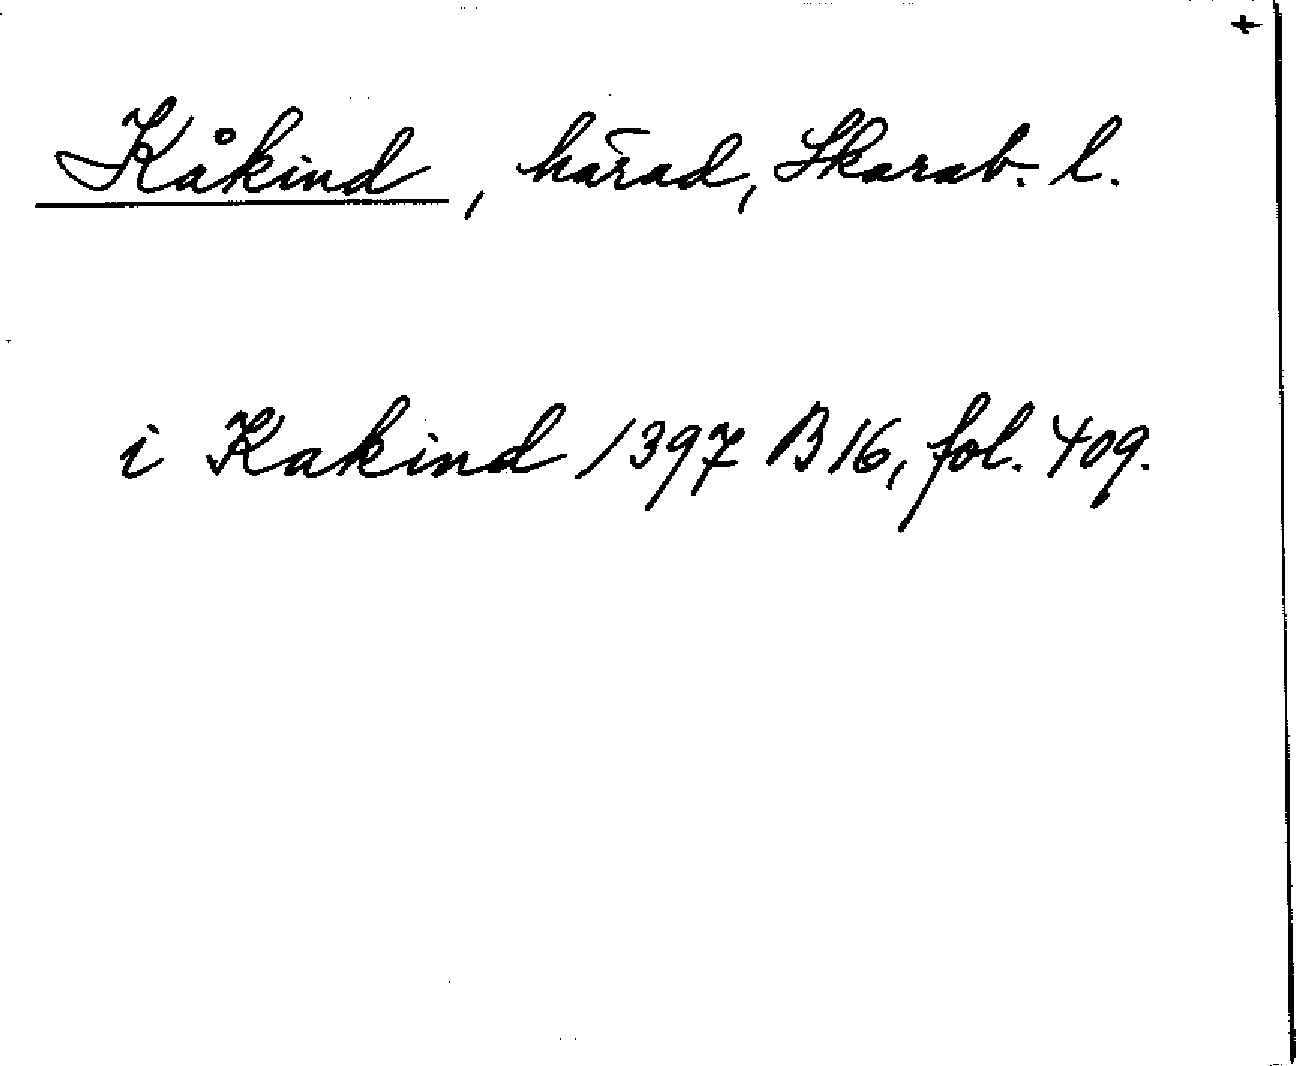 +
Kåkind, härad, Skarab. l.
i Kakind 1397 B 16, fol. 409.